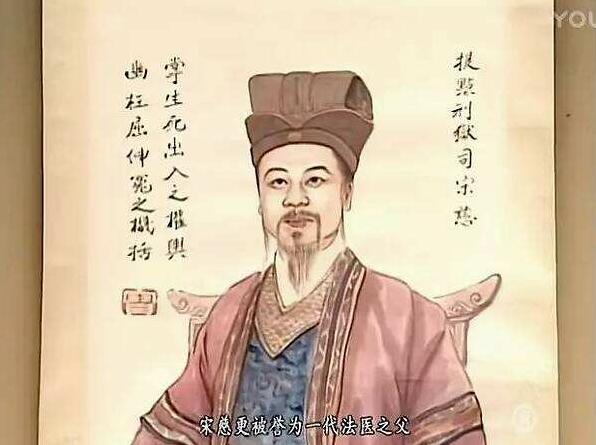 提點刑獄司宋慈
掌生死出入之權輿
幽枉屈伸冤之機括
宋慈更被誉为一代法医之父
YOU